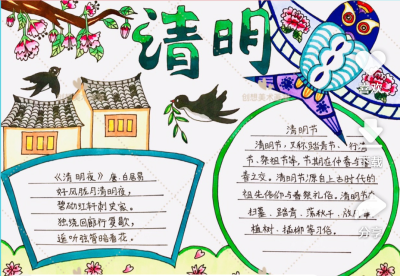 清明
《清明夜》唐·白居易
好风胧月清明夜,
碧砌红轩刺史家。
独绕回廊行复歇,
遥听弦管暗看花。
清明节
清明节,又称踏青节、行清
节、祭祖节等,节期在仲春与暮
春之交。清明节源自上古时代的
祖先信仰与春祭礼俗。清明节
扫墓、踏青、荡秋千、放
植树、插柳等习俗。
下载
分享